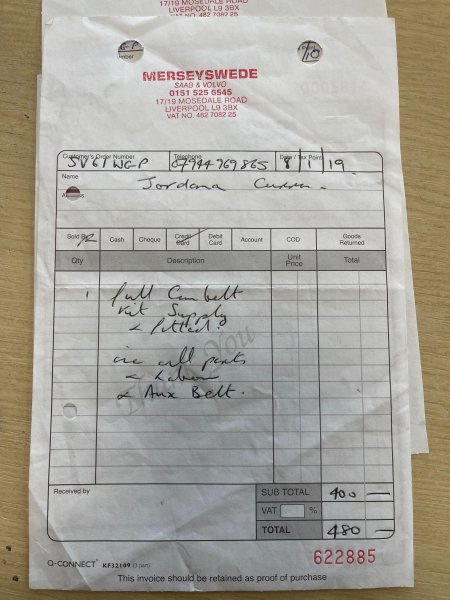 17/19 MOSEDALE ROAD
LIVERPOOL L9 3BX
VAT NO. 482 7082 25
MERSEYSWEDE
SAAB & VOLVO
0151 525 6545
17/19 MOSEDALE ROAD
LIVERPOOL L9 3BX
VAT NO. 482 7082 25
Customer's Order Number Telephone Date / Tax Point
SV61 WGP 07944769865 8/1/19.
Name Jordana
Address
Sold By Cash Cheque Credit Card Debit Card Account COD Goods Returned
Qty Description Unit Price Total
1 full Cambelt
kit Supply
& fitted.
inc all parts
& Labour
& Aux Belt.
Thank You
Received by
SUB TOTAL 400 —
VAT %
TOTAL 480 —
Q-CONNECT KF32109 (3 part)
622885
This invoice should be retained as proof of purchase